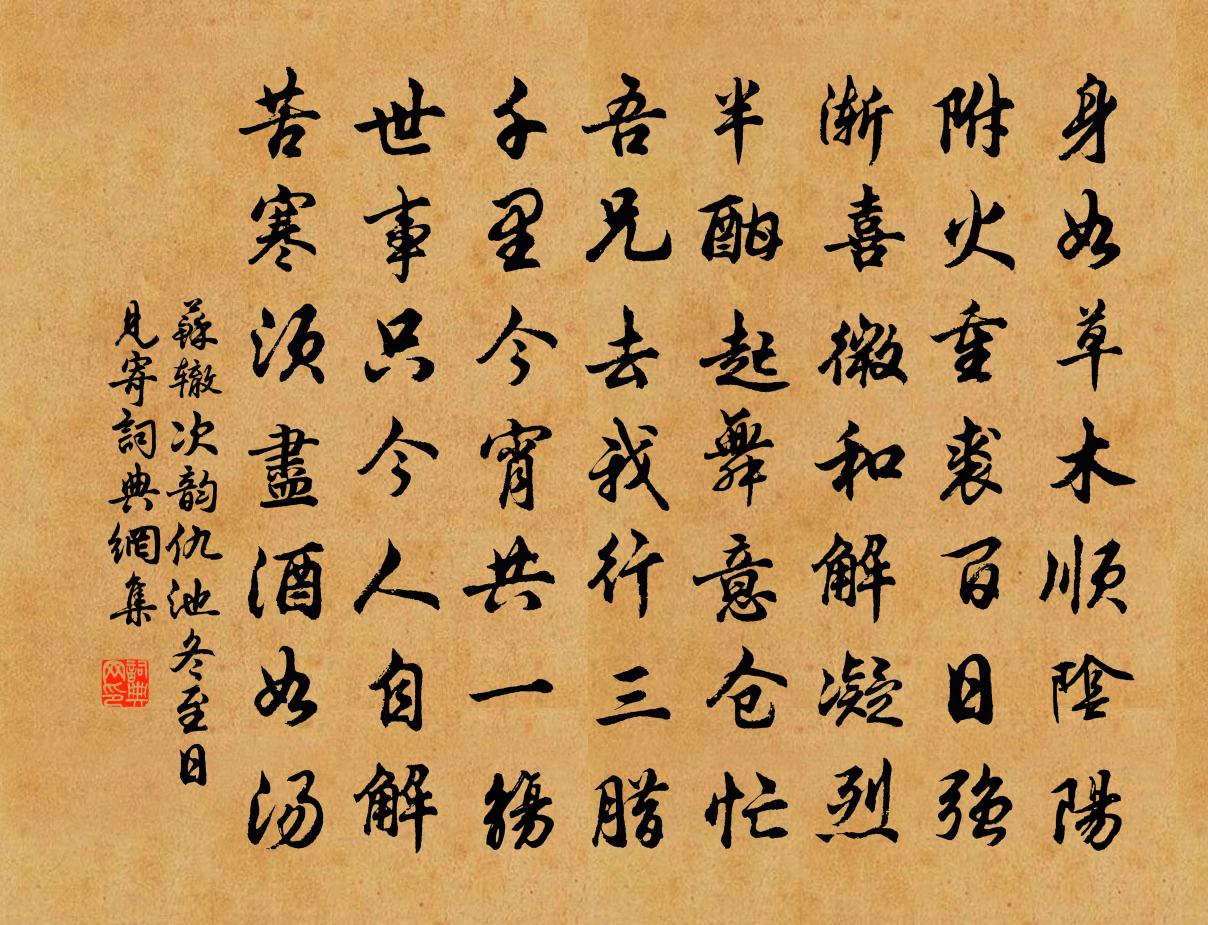 身如草木順陰陽
附火重裘百日強
漸喜微和解凝烈
半酣起舞意仓忙
吾兄去我行三腊
千里今宵共一觴
世事只今人自解
苦寒须盡酒如汤
蘇辙次韵仇池冬至日
見寄詞典網集
詞典
网